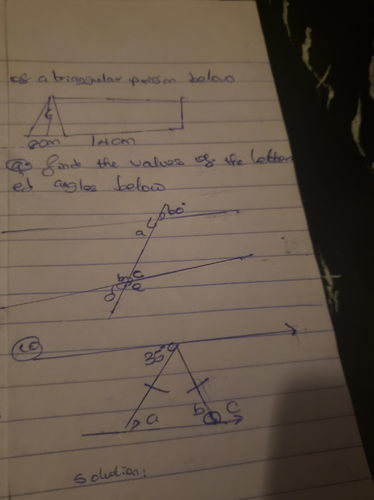 of a triangular prism below
6cm 14cm
Q9 find the values of the letter
ed angles below
60°
a
b c
d e
10
35°
a b c
Solution: